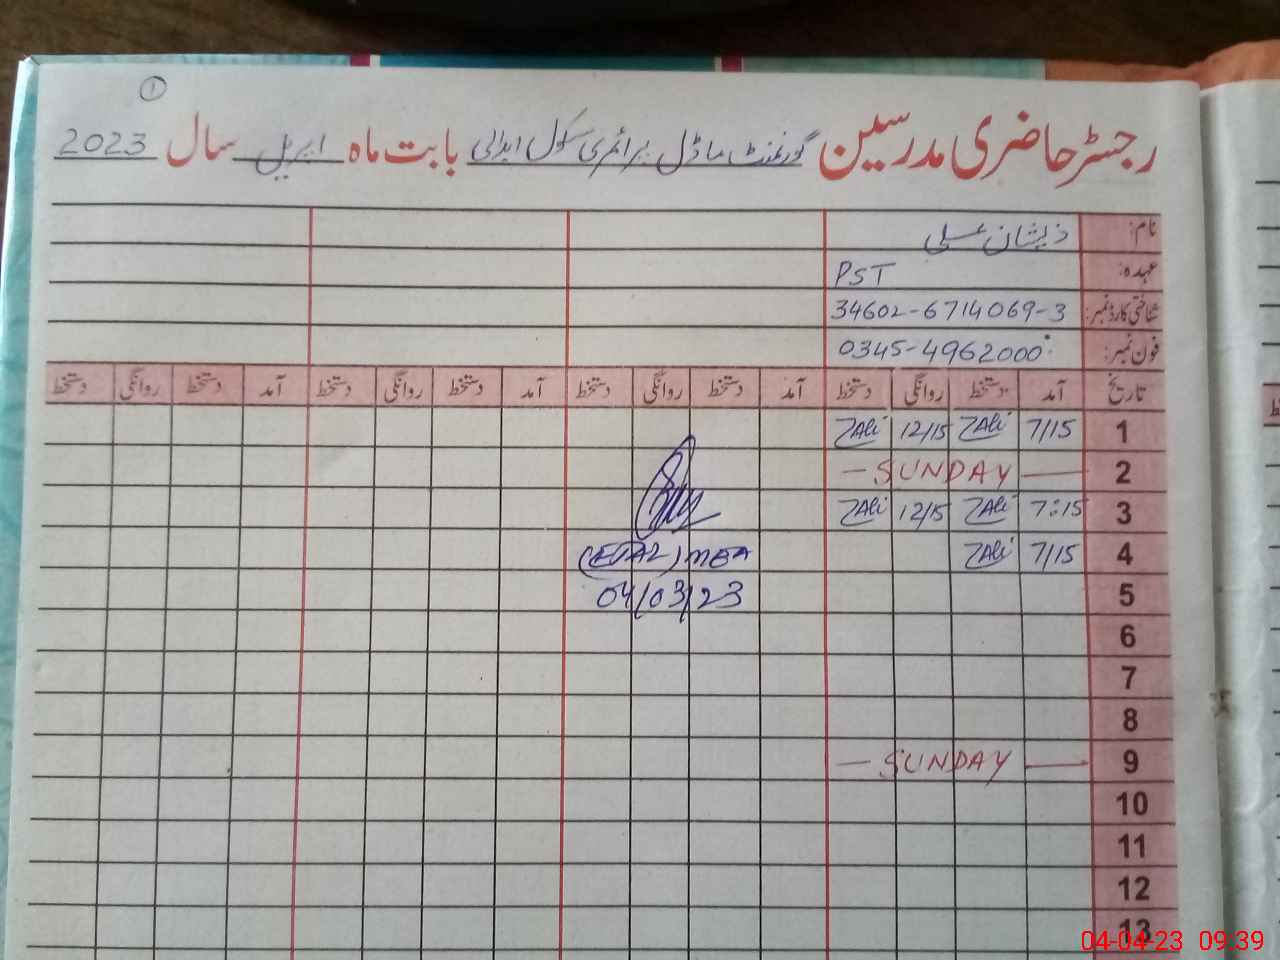 ①
رجسٹر حاضری مدرسین گورنمنٹ ماڈل پرائمری سکول ابدالی بابت ماہ اپریل سال 2023
نام: ذیشان علی
عہدہ: PST
شناختی کارڈ نمبر: 34602-6714069-3
فون نمبر: 0345-4962000
تاریخ آمد دستخط روانگی دستخط آمد دستخط روانگی دستخط آمد دستخط روانگی دستخط آمد دستخط روانگی دستخط
1 7/15 ZAli 12/15 ZAli
2 — SUNDAY —
3 7:15 ZAli 12/15 ZAli
4 7/15 ZAli
MEA
5 04/03/23
6
7
8
9 — SUNDAY —
10
11
12
13
04-04-23 09:39